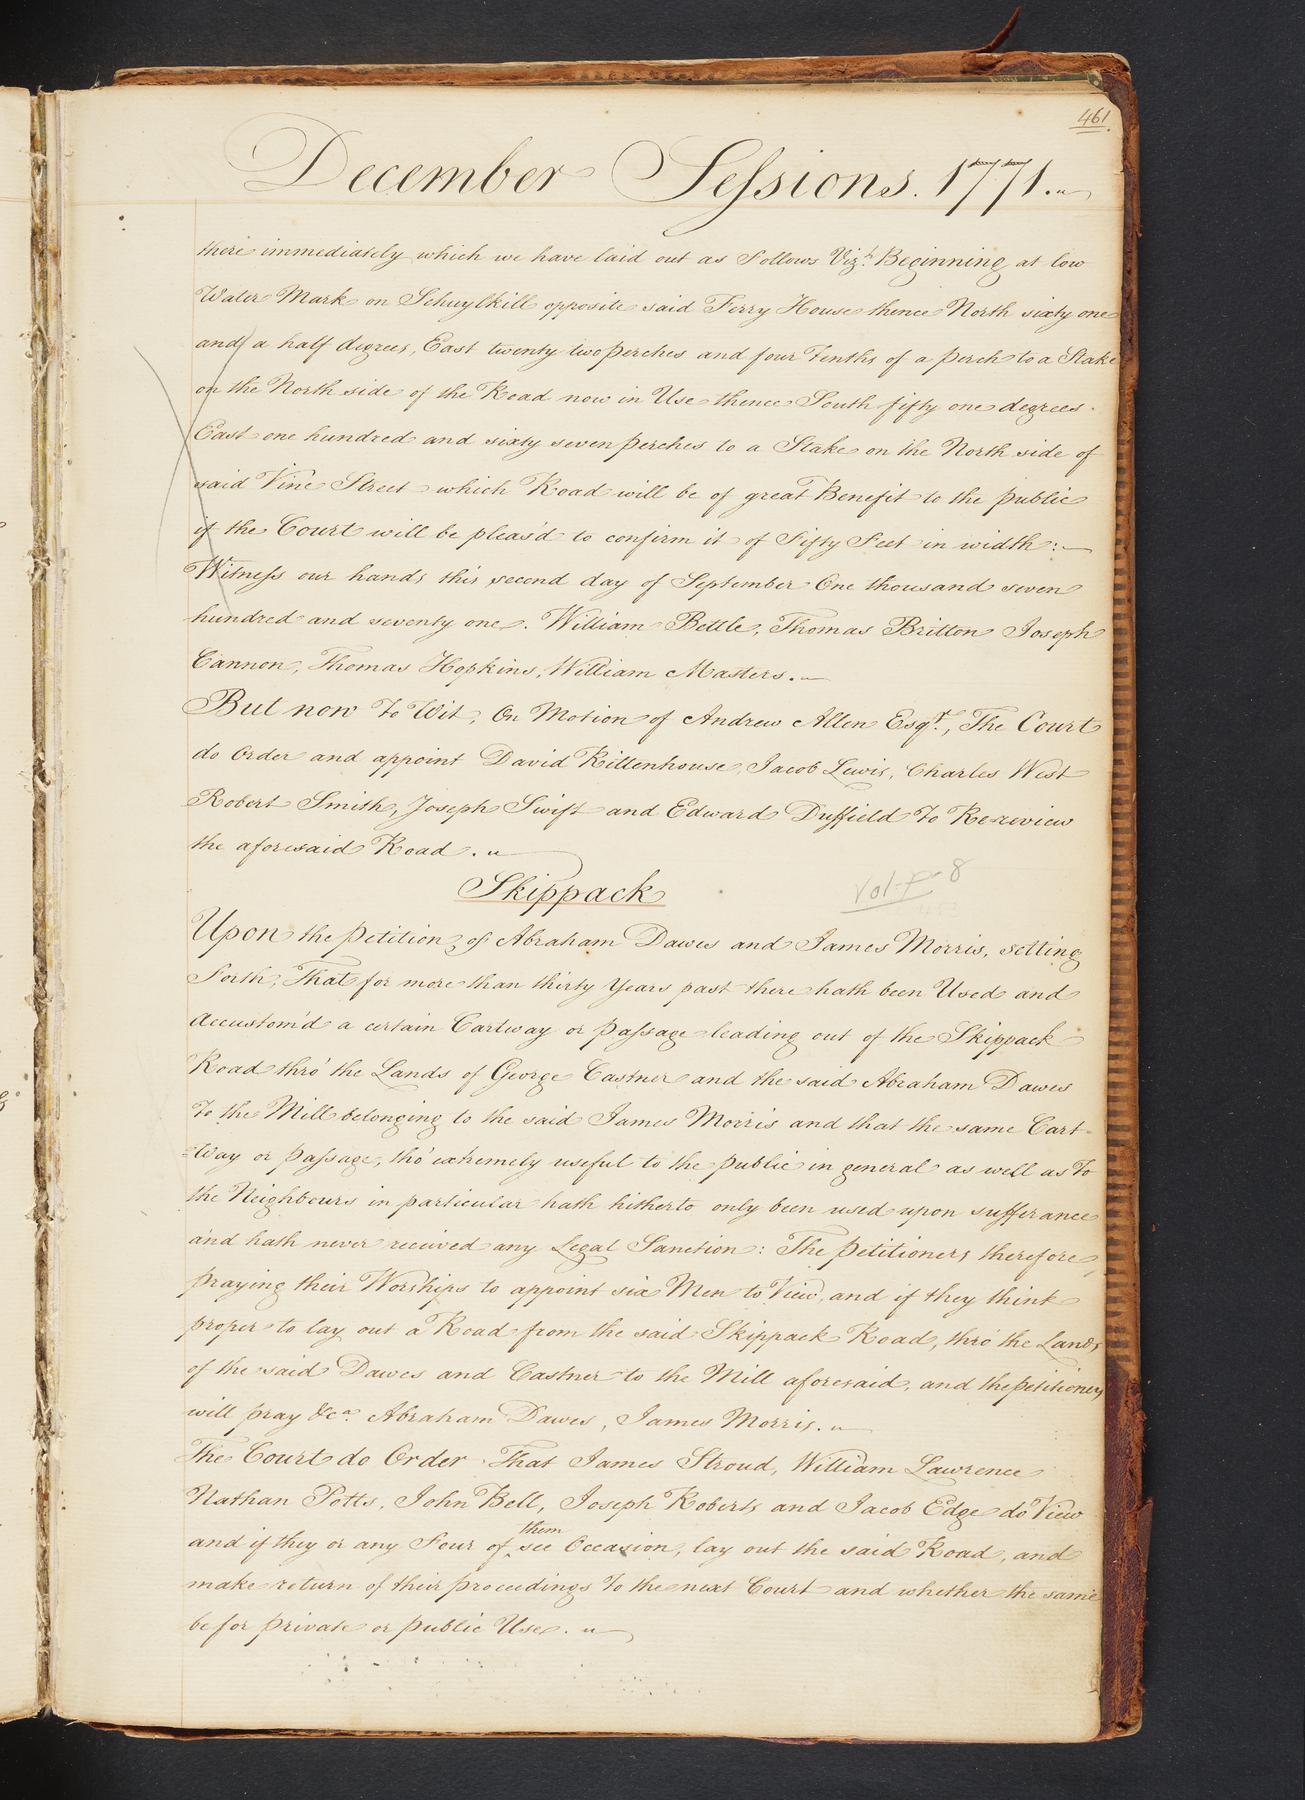 461
December Sessions. 1771.
there immediately which we have laid out as Follows Vizt. Beginning at low
Water Mark on Schuylkill opposite said Ferry House thence North sixty one
and a half degrees, East twenty two perches and four Tenths of a perch to a Stake
on the North side of the Road now in Use thence South fifty one degrees
East one hundred and sixty seven perches to a Stake on the North side of
said Vine Street which Road will be of great Benefit to the public
if the Court will be pleas'd to confirm it of Fifty Feet in width:
Witness our hands this second day of September One thousand seven
hundred and seventy one. William Bettle, Thomas Britton Joseph
Cannon, Thomas Hopkins, William Masters.
But now To Wit, On Motion of Andrew Allen Esqr., The Court
do Order and appoint David Rittenhouse, Jacob Lewis, Charles West
Robert Smith, Joseph Swift and Edward Duffield To Re-review
the aforesaid Road.
Skippack
Vol-P-8
Upon the Petition of Abraham Dawes and James Morris, setting
Forth, That for more than thirty Years past there hath been Used and
Accustom'd a certain Cartway or passage leading out of the Skippack
Road thro' the Lands of George Castner and the said Abraham Dawes
To the Mill belonging to the said James Morris and that the same Cart-
=Way or passage, tho' extremely useful to the public in general as well as To
the Neighbours in particular hath hitherto only been used upon sufferance
and hath never received any Legal Sanction: The Petitioners therefore,
praying their Worships to appoint six Men to View, and if they think
proper to lay out a Road from the said Skippack Road, thro' the Lands
of the said Dawes and Castner to the Mill aforesaid, and the petitioners
will pray &ca. Abraham Dawes, James Morris.
The Court do Order That James Stroud, William Lawrence
Nathan Potts, John Bell, Joseph Roberts and Jacob Edge do View
and if they or any Four of ^them see Occasion, lay out the said Road, and
make return of their proceedings To the next Court and whether the same
be for private or public Use.